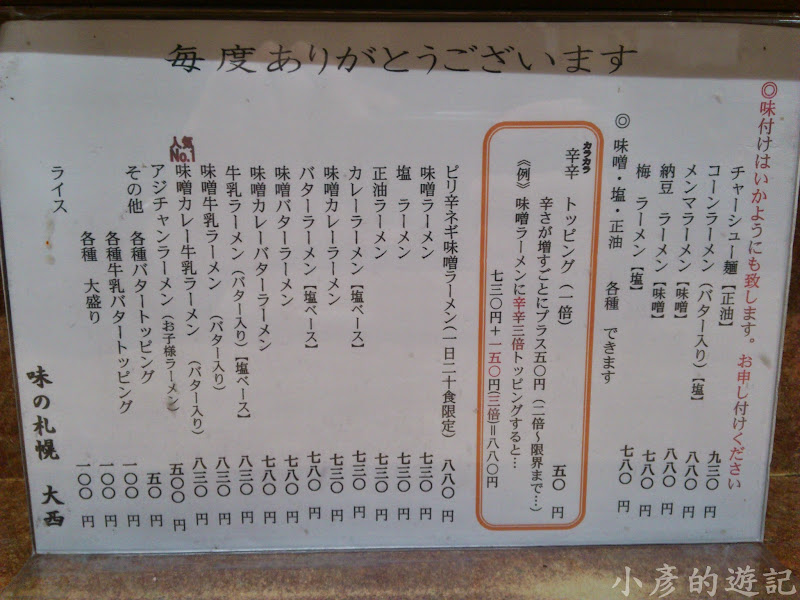 毎度ありがとうございます
◎味付けはいかようにも致します。お申し付けください
チャーシュー麺【正油】 九三〇円
コーンラーメン(バター入り)【塩】 八八〇円
メンマラーメン【味噌】 八八〇円
納豆 ラーメン【味噌】 七八〇円
梅 ラーメン【塩】 七八〇円
◎ 味噌・塩・正油 各種 できます
カラカラ
辛辛 トッピング(一倍) 五〇円
辛さが増すごとにプラス五〇円(二倍〜限界まで…)
《例》味噌ラーメンに辛辛三倍トッピングすると…
七三〇円+一五〇円(三倍)=八八〇円
ピリ辛ネギ味噌ラーメン(一日二十食限定) 八八〇円
味噌ラーメン 七三〇円
塩 ラーメン 七三〇円
正油ラーメン 七三〇円
カレーラーメン【塩ベース】 七三〇円
味噌カレーラーメン 七三〇円
バターラーメン【塩ベース】 七八〇円
味噌バターラーメン 七八〇円
味噌カレーバターラーメン 七八〇円
牛乳ラーメン(バター入り)【塩ベース】 八三〇円
味噌牛乳ラーメン (バター入り) 八三〇円
人気No.1
味噌カレー牛乳ラーメン (バター入り) 八三〇円
アジチャンラーメン(お子様ラーメン) 五〇〇円
その他 各種バタートッピング 五〇円
各種牛乳バタートッピング 一〇〇円
各種 大盛り 一〇〇円
ライス 一〇〇円
味の札幌 大西
小彥的遊記